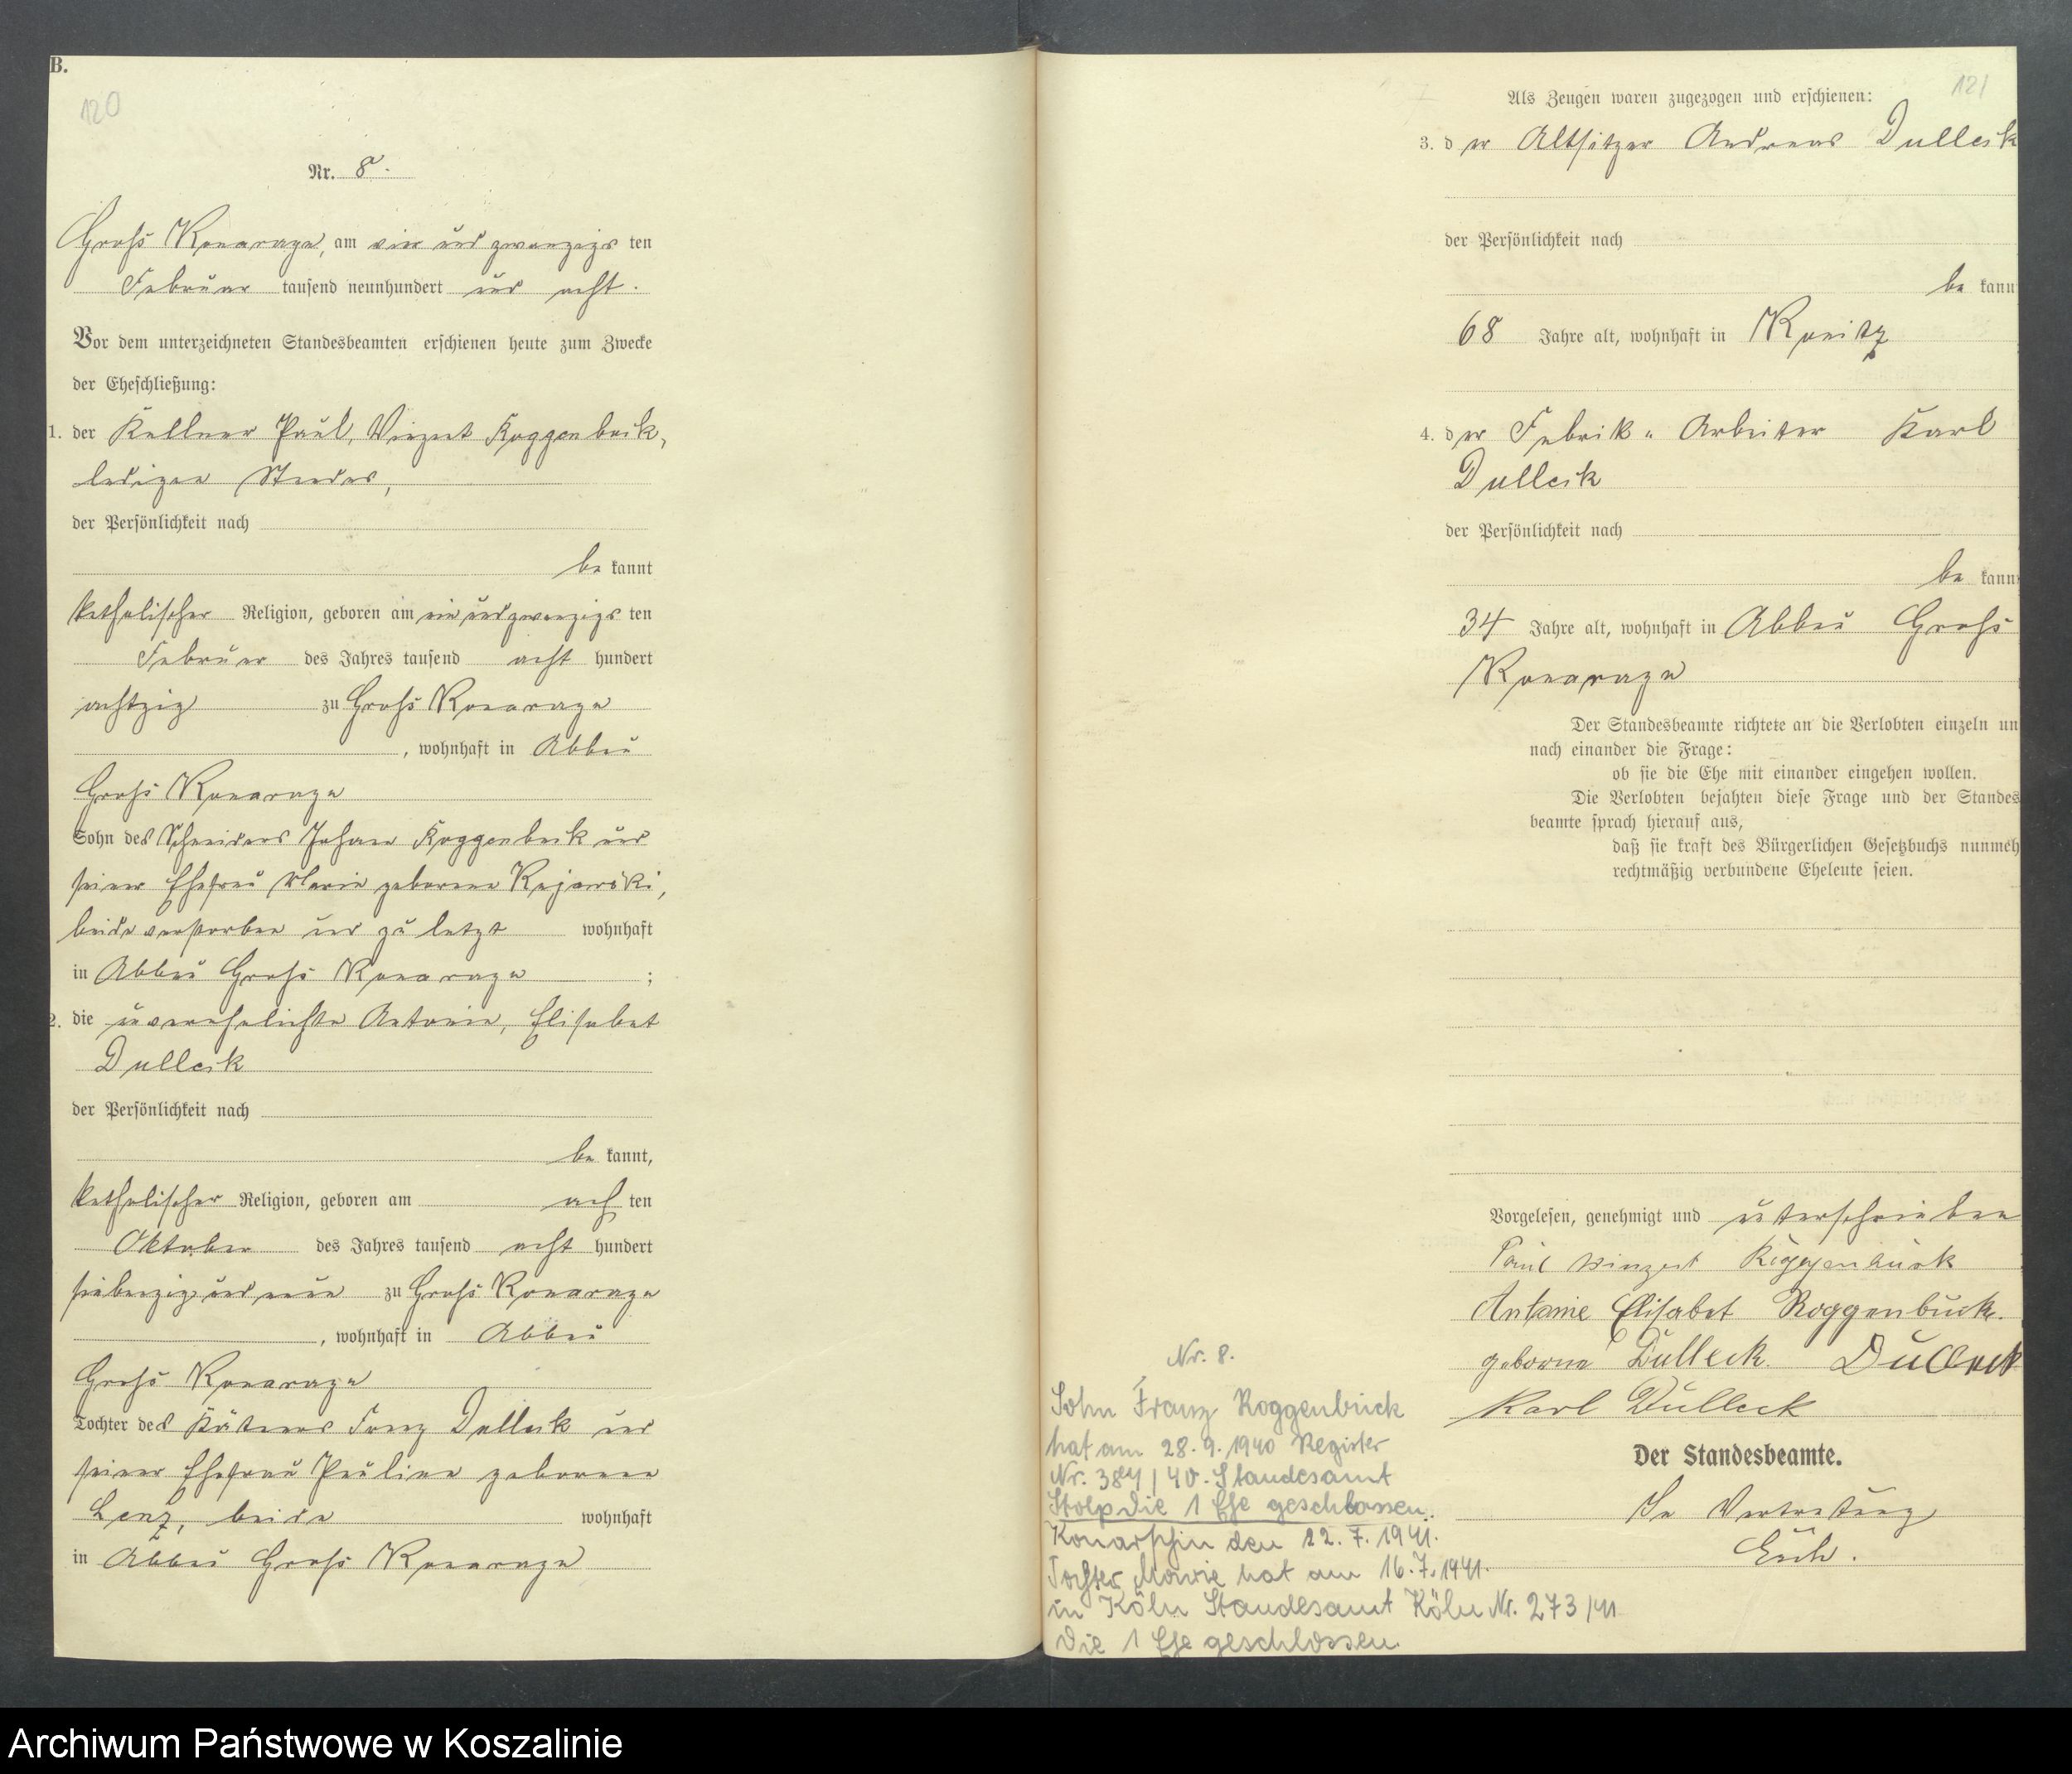 B.
120
Nr. 8.
Groß Konarzyn, am vier und zwanzigs ten
Februar tausend neunhundert und acht.
Vor dem unterzeichneten Standesbeamten erschienen heute zum Zwecke
der Eheschließung:
1. der Kellner Paul, Vinzent Roggenbuck,
ledigen Standes,
der Persönlichkeit nach
be kannt
katholischer Religion, geboren am ein und zwanzigs ten
Februar des Jahres tausend acht hundert
achtzig zu Groß Konarzyn
, wohnhaft in Abbau
Groß Konarzyn
Sohn des Schneiders Johann Roggenbuck und
seiner Ehefrau Maria geborene
beide verstorben und zu letzt wohnhaft
in Abbau Groß Konarzyn ;
2. die unverehelichte Antonie, Elisabet
Dulleck
der Persönlichkeit nach
be kannt,
katholischer Religion, geboren am ach ten
Oktober des Jahres tausend acht hundert
siebenzig und neun zu Groß Konarzyn
, wohnhaft in Abbau
Groß Konarzyn
Tochter des Kätners Franz Dulleck und
seiner Ehefrau Pauline geborene
Lenz, beide wohnhaft
in Abbau Groß Konarzyn
121
Als Zeugen waren zugezogen und erschienen:
3. d er Altsitzer Andreas Dulleck
der Persönlichkeit nach
be kann
68 Jahre alt, wohnhaft in Konitz
4. d er Fabrik- Arbeiter Karl
Dulleck
der Persönlichkeit nach
be kann
34 Jahre alt, wohnhaft in Abbau Groß
Konarzyn
Der Standesbeamte richtete an die Verlobten einzeln un
nach einander die Frage:
ob sie die Ehe mit einander eingehen wollen.
Die Verlobten bejahten diese Frage und der Standes
beamte sprach hierauf aus,
daß sie kraft des Bürgerlichen Gesetzbuchs nunmeh
rechtmäßig verbundene Eheleute seien.
Vorgelesen, genehmigt und unterschrieben
Paul Vinzent Roggenbuck
Antonie Elisabet Roggenbuck.
geborne Dulleck. Dulleck
Karl Dulleck
Der Standesbeamte.
In Vertretung
Nr. 8.
Sohn Franz Roggenbuck
hat am 28. 9. 1940 Register
Nr. 384/40. Standesamt
Stolp die 1 Ehe geschlossen.
Konarschin den 22. 7. 1941.
Tochter Marie hat am 16. 7. 1941.
in Köln Standesamt Köln Nr. 273/41
die 1 Ehe geschlossen.
Archiwum Państwowe w Koszalinie